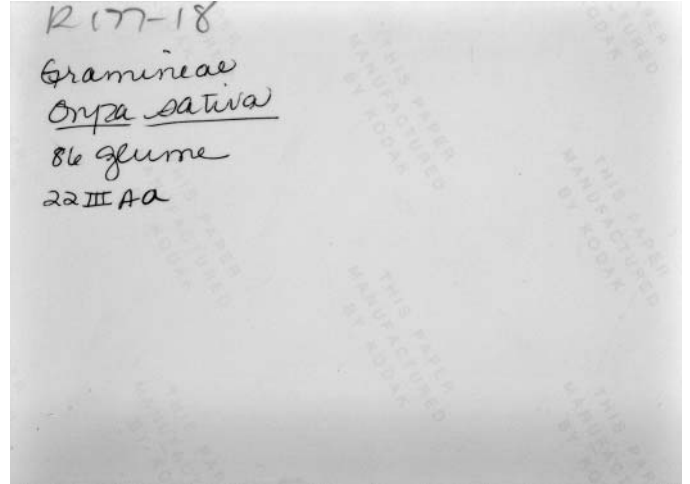 R 177-18
Gramineae
Oryza sativa
86 glume
22 III Aa
THIS PAPER
MANUFACTURED
BY KODAK
THIS PAPER
MANUFACTURED
BY KODAK
THIS PAPER
MANUFACTURED
BY KODAK